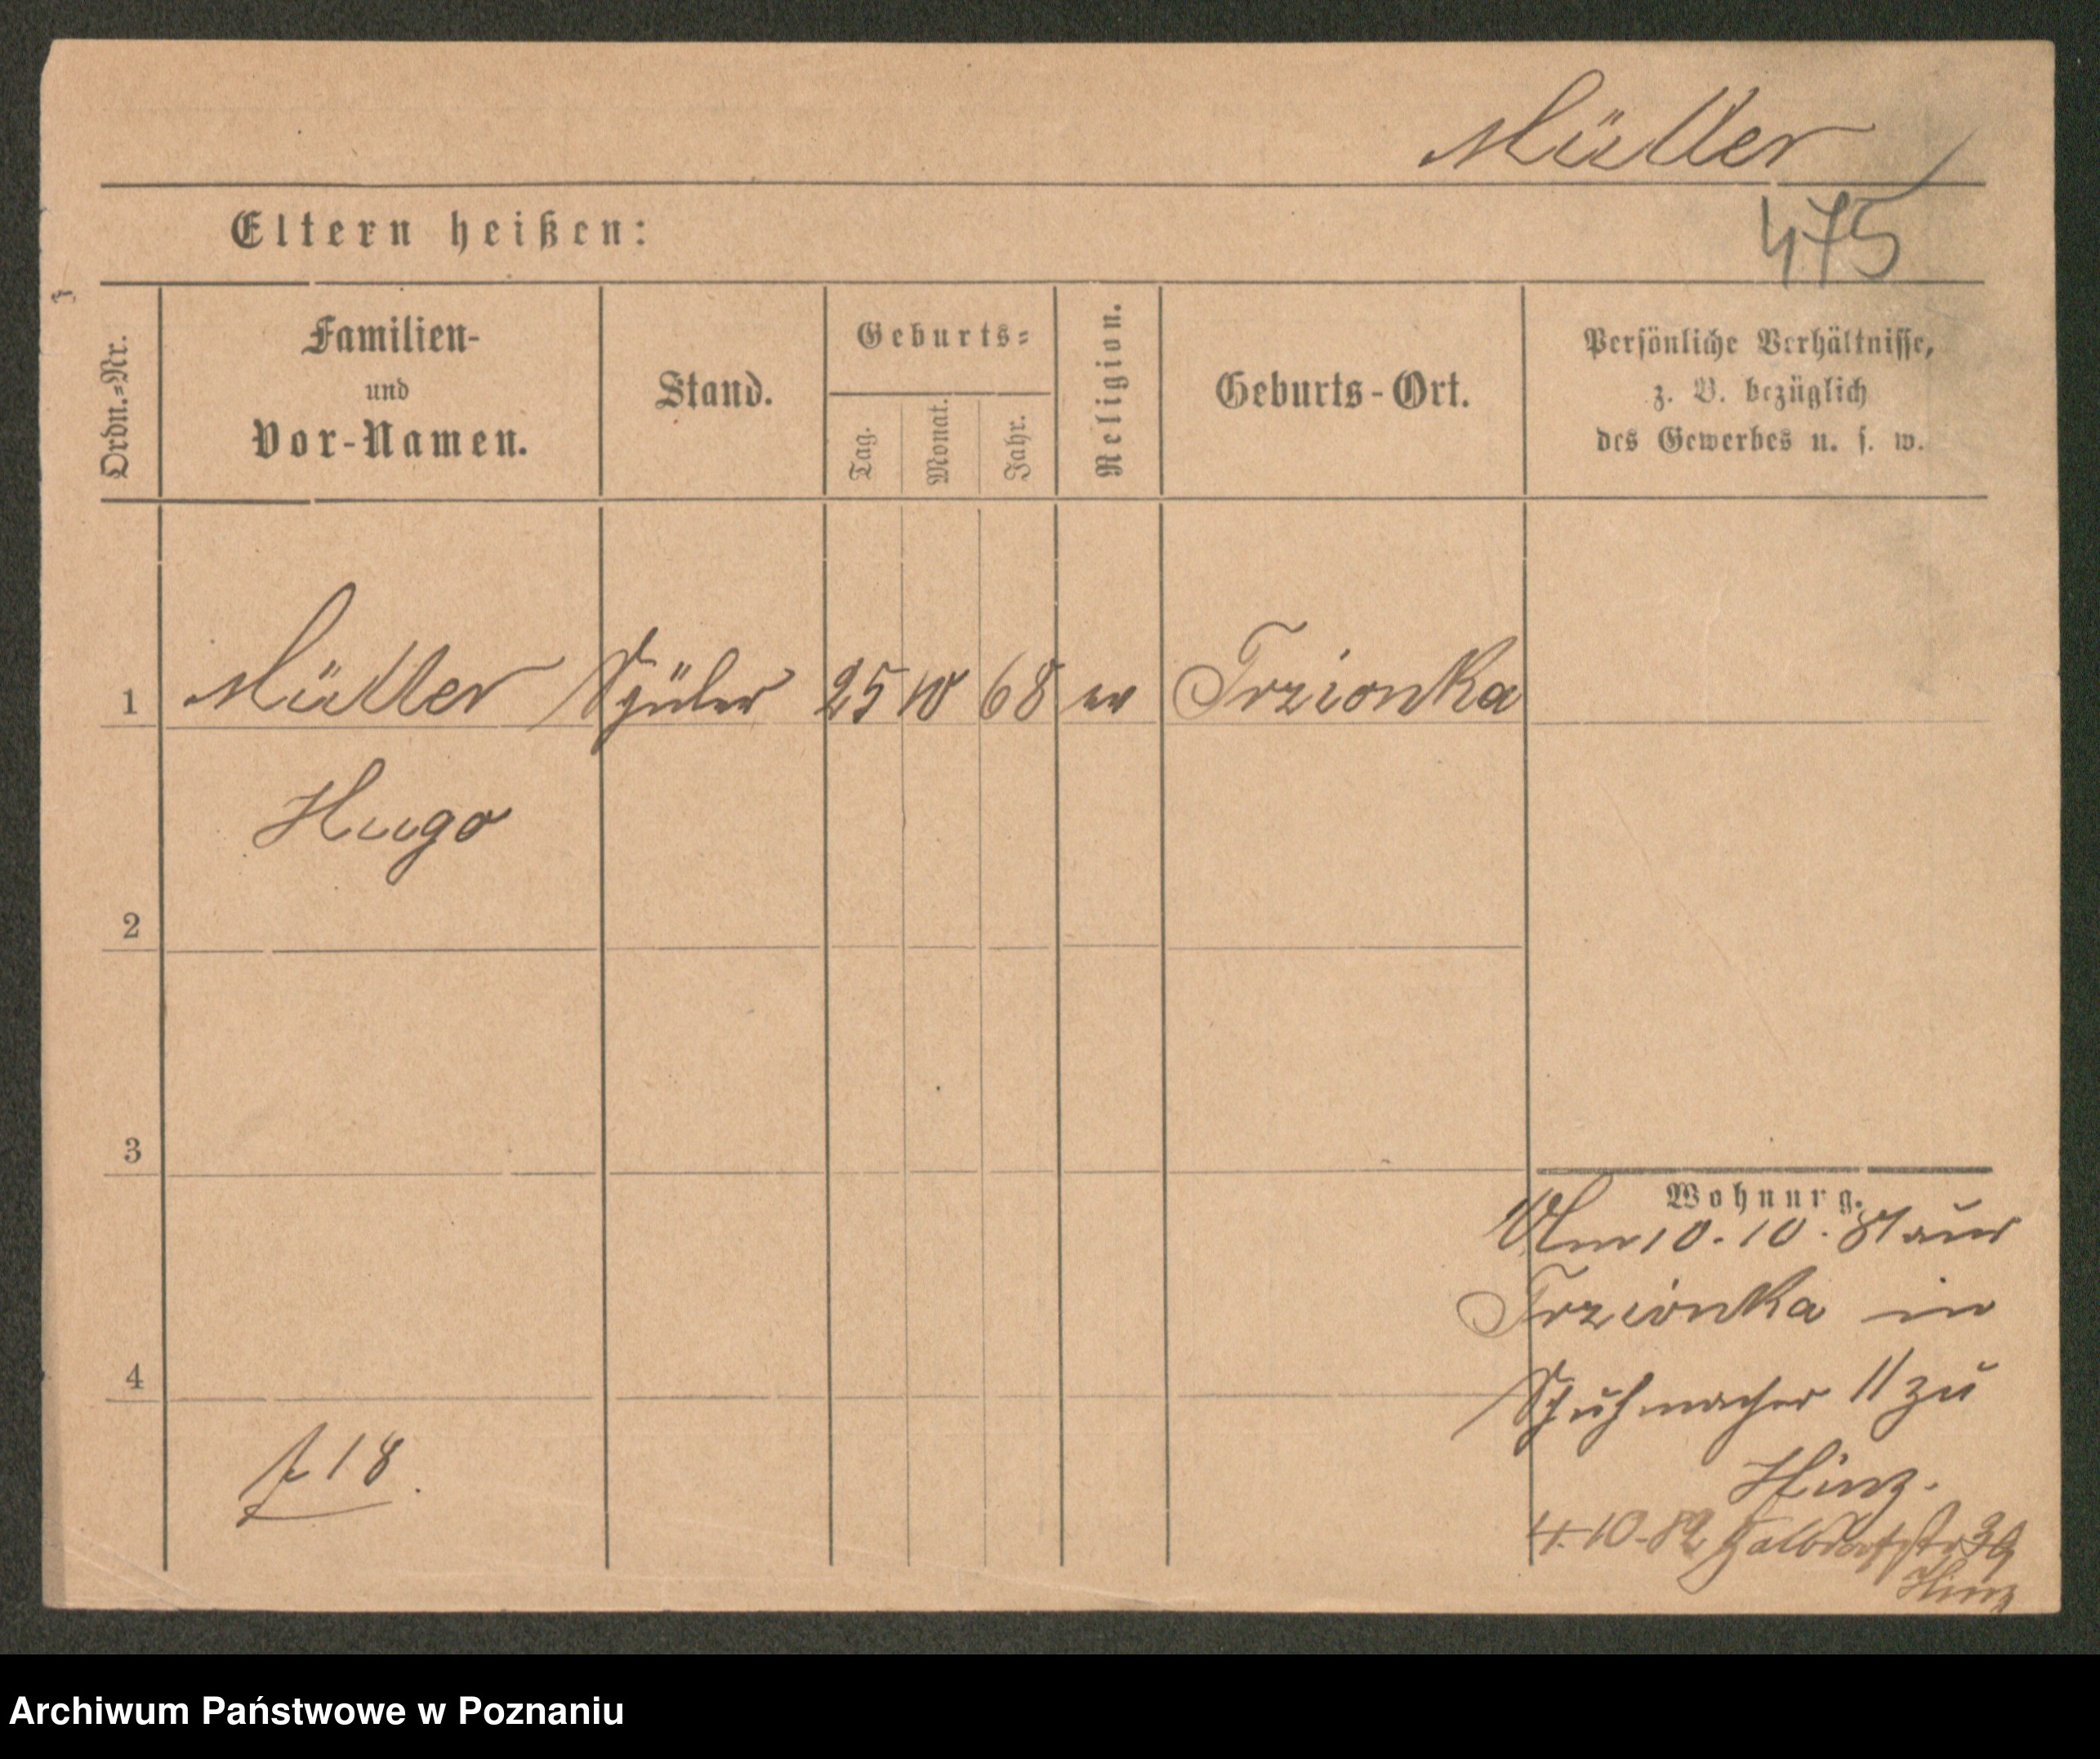 Müller
Eltern heißen:
475
Ordn.=Nr.
Familien-
und
Vor-Namen.
Stand.
Geburts=
Tag.
Monat.
Jahr.
Religion.
Geburts-Ort.
Persönliche Verhältnisse,
z. B. bezüglich
des Gewerbes u. s. w.
1 Müller Schüler 25 10 68 ev Trzionka
Hugo
2
3
Wohnung.
Am 10. 10. 81 aus
Trzionka in
4
Schuhmacher 11 zu
Hinz.
18.
4.10.82 Halbdorfstr 39
Hinz
Archiwum Państwowe w Poznaniu